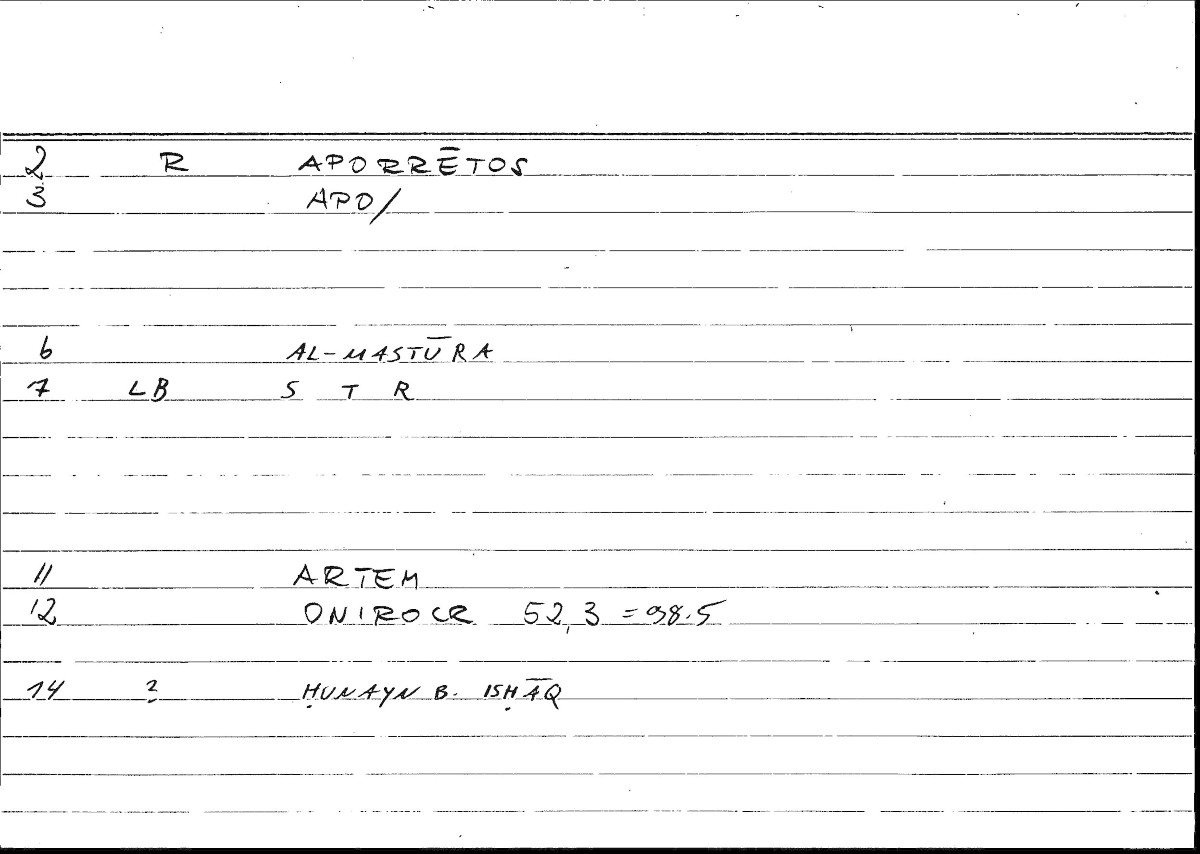 2 R APORRĒTOS
3 APO/
6 AL-MASTŪRA
7 LB S T R
11 ARTEM
12 ONIROCR 52,3 = 98.5
14 ? ḤUNAYN B. ISḤĀQ